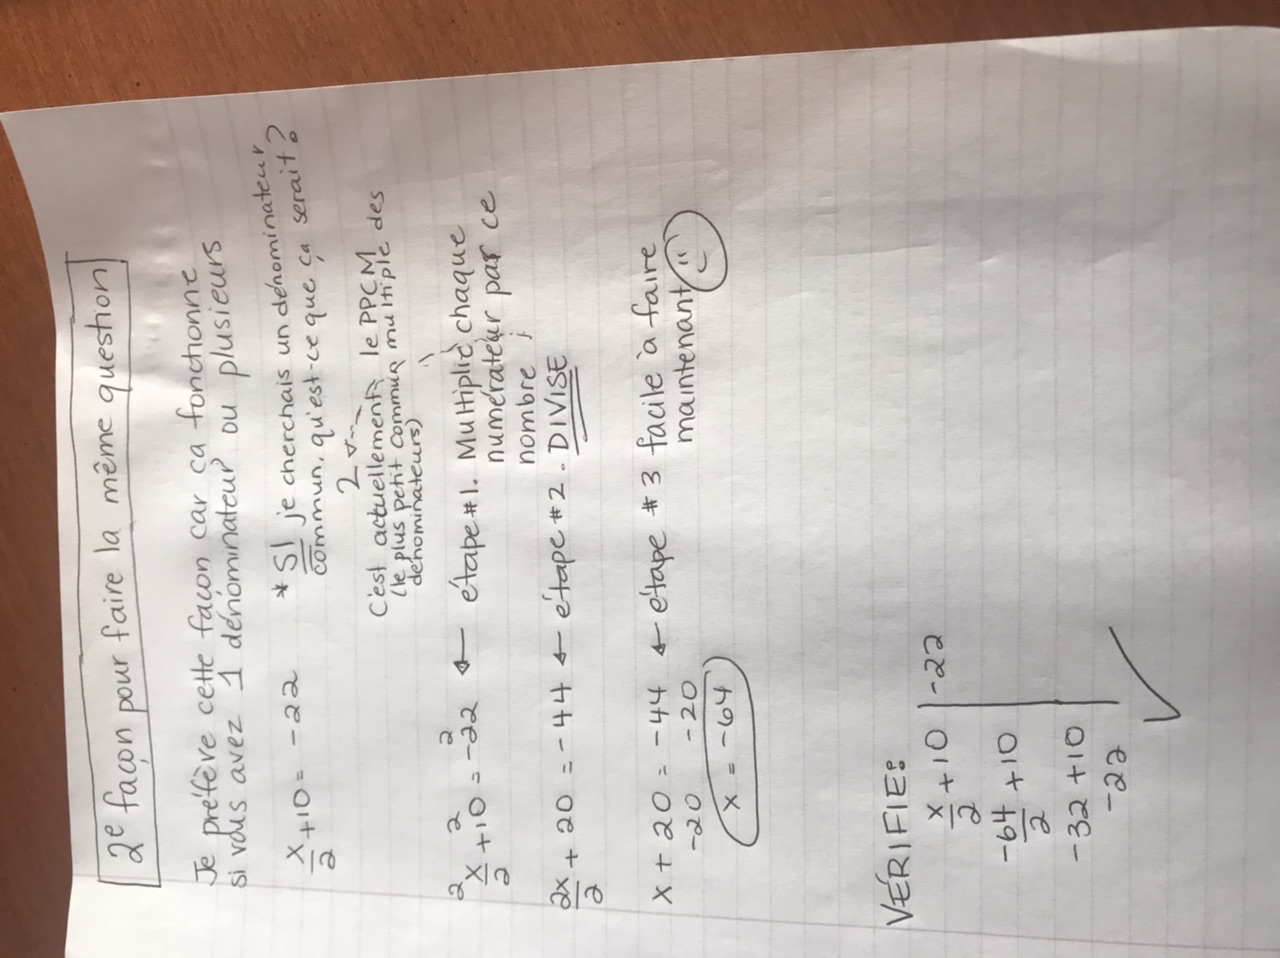 2e façon pour faire la même question
Je préfève cette façon car ça fonctionne
si vous avez 1 dénominateur ou plusieurs
x/2 + 10 = -22
* SI je cherchais un dénominateur
commun, qu'est-ce que ça serait?
2
C'est actuellement le PPCM
(le plus petit commun multiple des
dénominateurs)
2 x/2 + 2 10 = 2 -22 ← étape #1. Multiplie chaque
numérateur par ce
nombre
2x/2 + 20 = -44 ← étape #2. DIVISE
x + 20 = -44 ← étape #3 facile à faire
maintenant
-20 -20
x = -64
VÉRIFIE:
x/2 + 10 | -22
-64/2 + 10
-32 + 10
-22